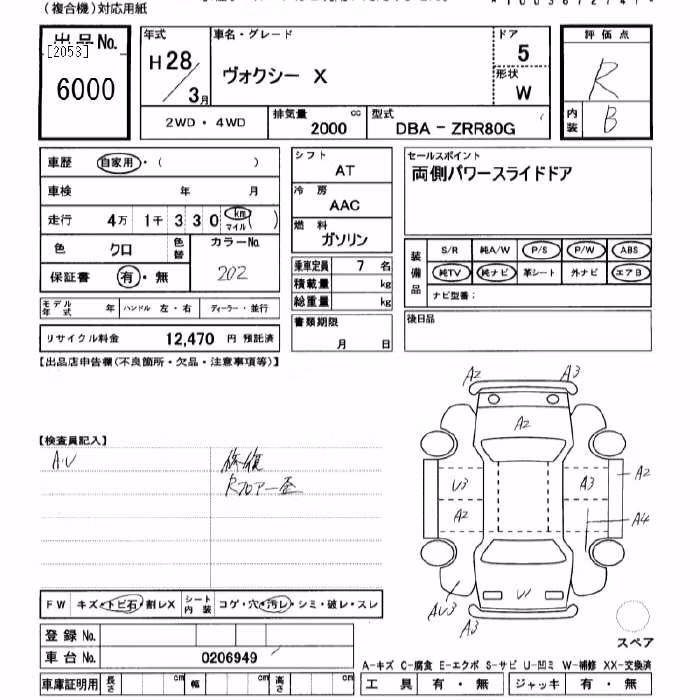 (複合機)対応用紙
出品No.
[2053]
6000
年式
H28/3月
車名・グレード
ヴォクシー X
ドア
5
形状
W
評価点
R
内装
B
2WD・4WD
排気量 cc
2000
型式
DBA-ZRR80G
車歴 自家用・( )
車検 年 月
走行 4万 1千 3 3 0 km マイル )
色 クロ 色替 カラーNo.
202
保証書 有・無
モデル年式 年 ハンドル 左・右 ディーラー・並行
リサイクル料金 12,470 円 預託済
シフト
AT
冷房
AAC
燃料
ガソリン
乗車定員 7 名
積載量 kg
総重量 kg
書類期限
月 日
セールスポイント
両側パワースライドドア
装備品
S/R 純A/W P/S P/W ABS
純TV 純ナビ 革シート 外ナビ エアB
ナビ型番:
後日品
【出品店申告欄(不良箇所・欠品・注意事項等)】
【検査員記入】
AU
修復
Rフロアー歪
A2 A3
A2
U3 A3 A2
A2 A4
AU3 W
A3
スペア
FW キズ・トビ石・割レX シート内装 コゲ・穴・汚レ・シミ・破レ・スレ
登録No.
車台No. 0206949
車庫証明用 長さ cm 幅 cm 高さ cm
A-キズ C-腐食 E-エクボ S-サビ U-凹ミ W-補修 XX-交換済
工具 有・無 ジャッキ 有・無